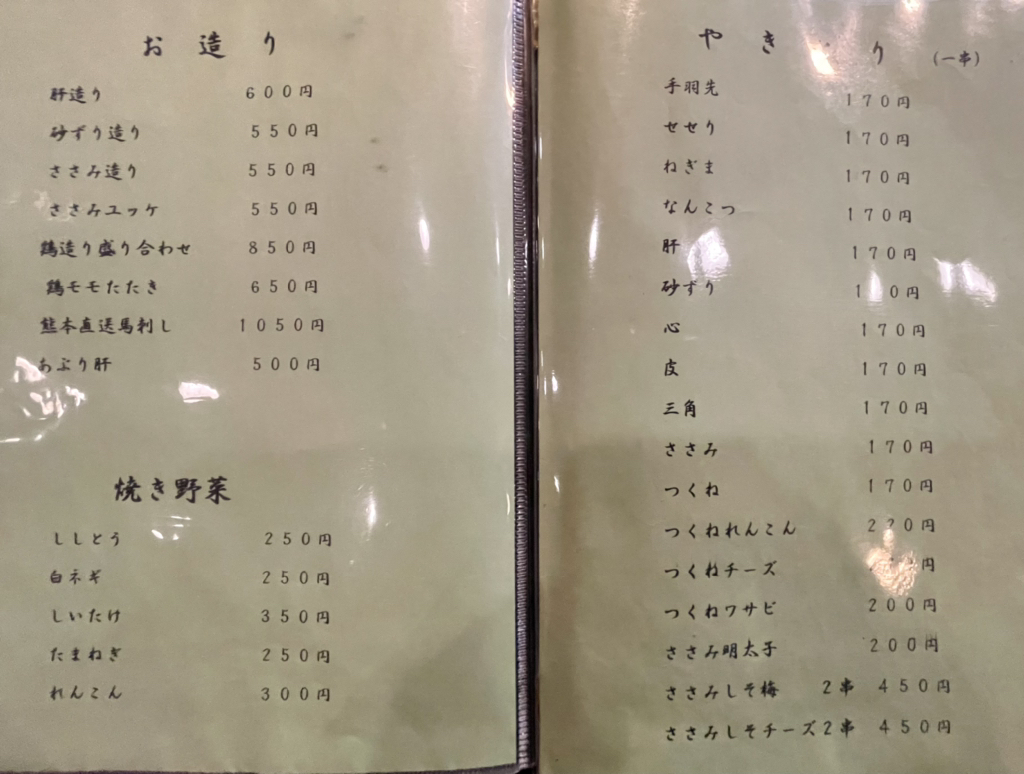 お造り
肝造り 600円
砂ずり造り 550円
ささみ造り 550円
ささみユッケ 550円
鶏造り盛り合わせ 850円
鶏モモたたき 650円
熊本直送馬刺し 1050円
あぶり肝 500円
焼き野菜
ししとう 250円
白ネギ 250円
しいたけ 350円
たまねぎ 250円
れんこん 300円
やき り (一串)
手羽先 170円
せせり 170円
ねぎま 170円
なんこつ 170円
肝 170円
砂ずり
心 170円
皮 170円
三角 170円
ささみ 170円
つくね 170円
つくねれんこん 220円
つくねチーズ 円
つくねワサビ 200円
ささみ明太子 200円
ささみしそ梅 2串 450円
ささみしそチーズ2串 450円